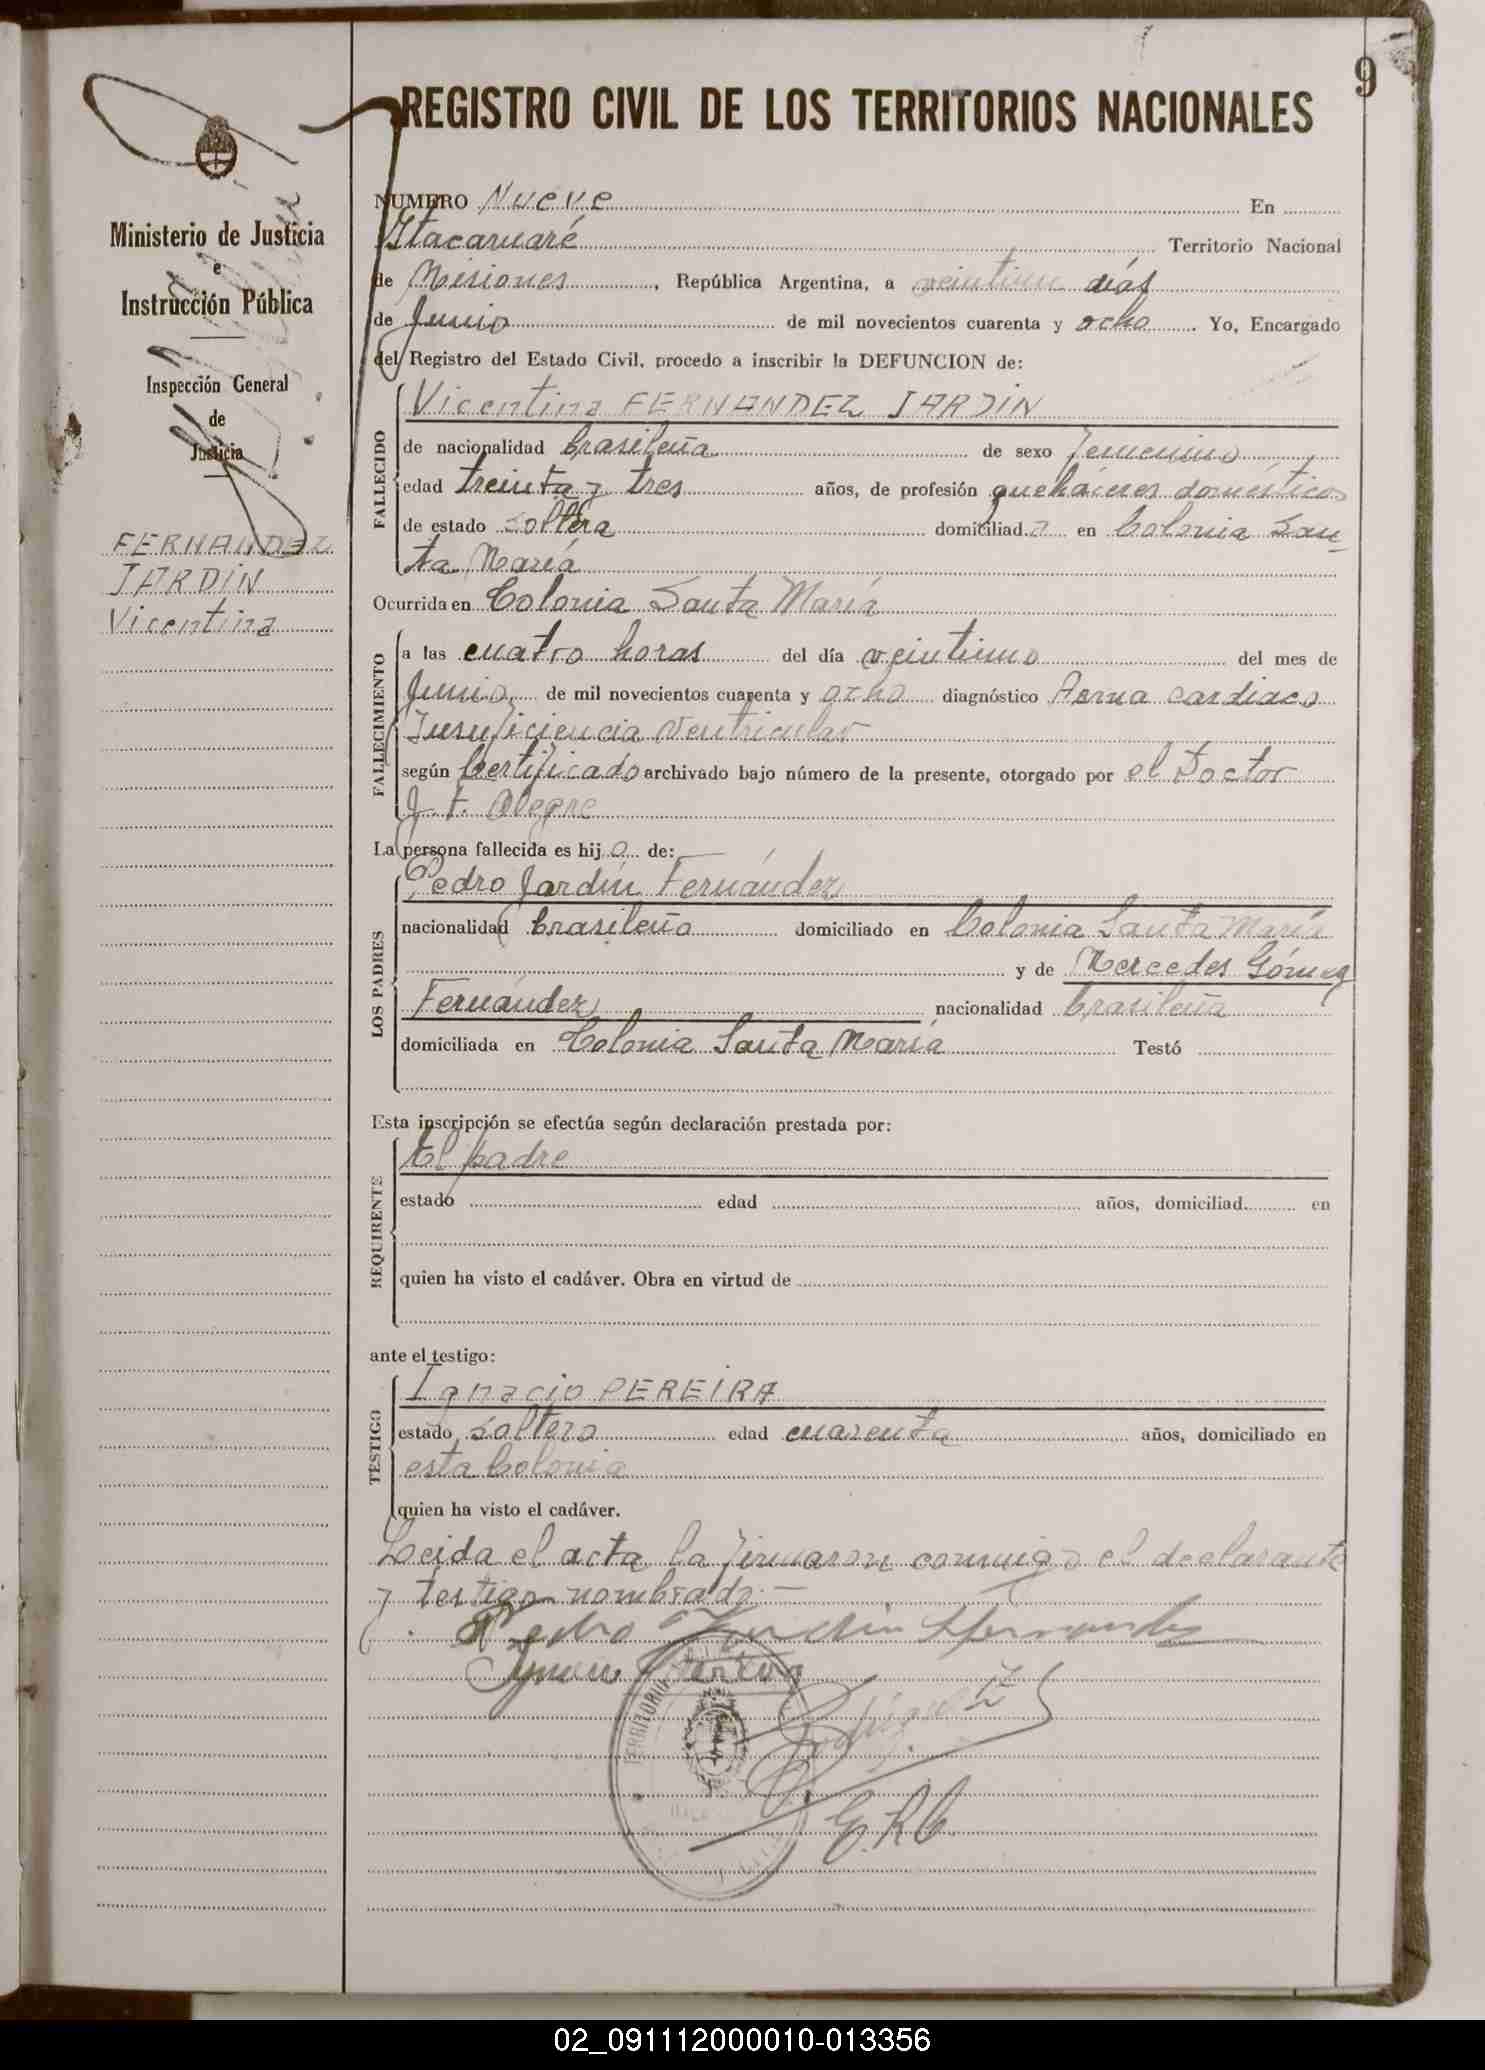 9
REGISTRO CIVIL DE LOS TERRITORIOS NACIONALES
Ministerio de Justicia
e
Instrucción Pública
Inspección General
de
Justicia
FERNANDEZ
JARDIN
Vicentina
NUMERO Nueve En
Itacaruaré Territorio Nacional
de Misiones, República Argentina, a veintiun días
de Junio de mil novecientos cuarenta y ocho. Yo, Encargado
del Registro del Estado Civil, procedo a inscribir la DEFUNCION de:
FALLECIDO
Vicentina FERNANDEZ JARDIN
de nacionalidad brasileña de sexo femenino
edad treinta y tres años, de profesión quehaceres domésticos
de estado soltera domiciliad a en Colonia San-
ta María
Ocurrida en Colonia Santa María
FALLECIMIENTO
a las cuatro horas del día veintiuno del mes de
Junio de mil novecientos cuarenta y ocho diagnóstico Asma cardiaco
Insuficiencia ventricular
según Certificado archivado bajo número de la presente, otorgado por el Doctor
J. F. Alegre
La persona fallecida es hij a de:
LOS PADRES
Pedro Jardín Fernández
nacionalidad brasileño domiciliado en Colonia Santa María
y de Mercedes Gómez
Fernández nacionalidad brasileña
domiciliada en Colonia Santa María Testó
Esta inscripción se efectúa según declaración prestada por:
REQUIRENTE
El padre
estado edad años, domiciliad en
quien ha visto el cadáver. Obra en virtud de
ante el testigo:
TESTIGO
Ignacio PEREIRA
estado soltero edad cuarenta años, domiciliado en
esta Colonia
quien ha visto el cadáver.
Leida el acta, la firmaron conmigo el declarante
y testigo nombrado.—
Pedro Jardin Hernandes
TERRITORIO
E.R.C.
02_091112000010-013356